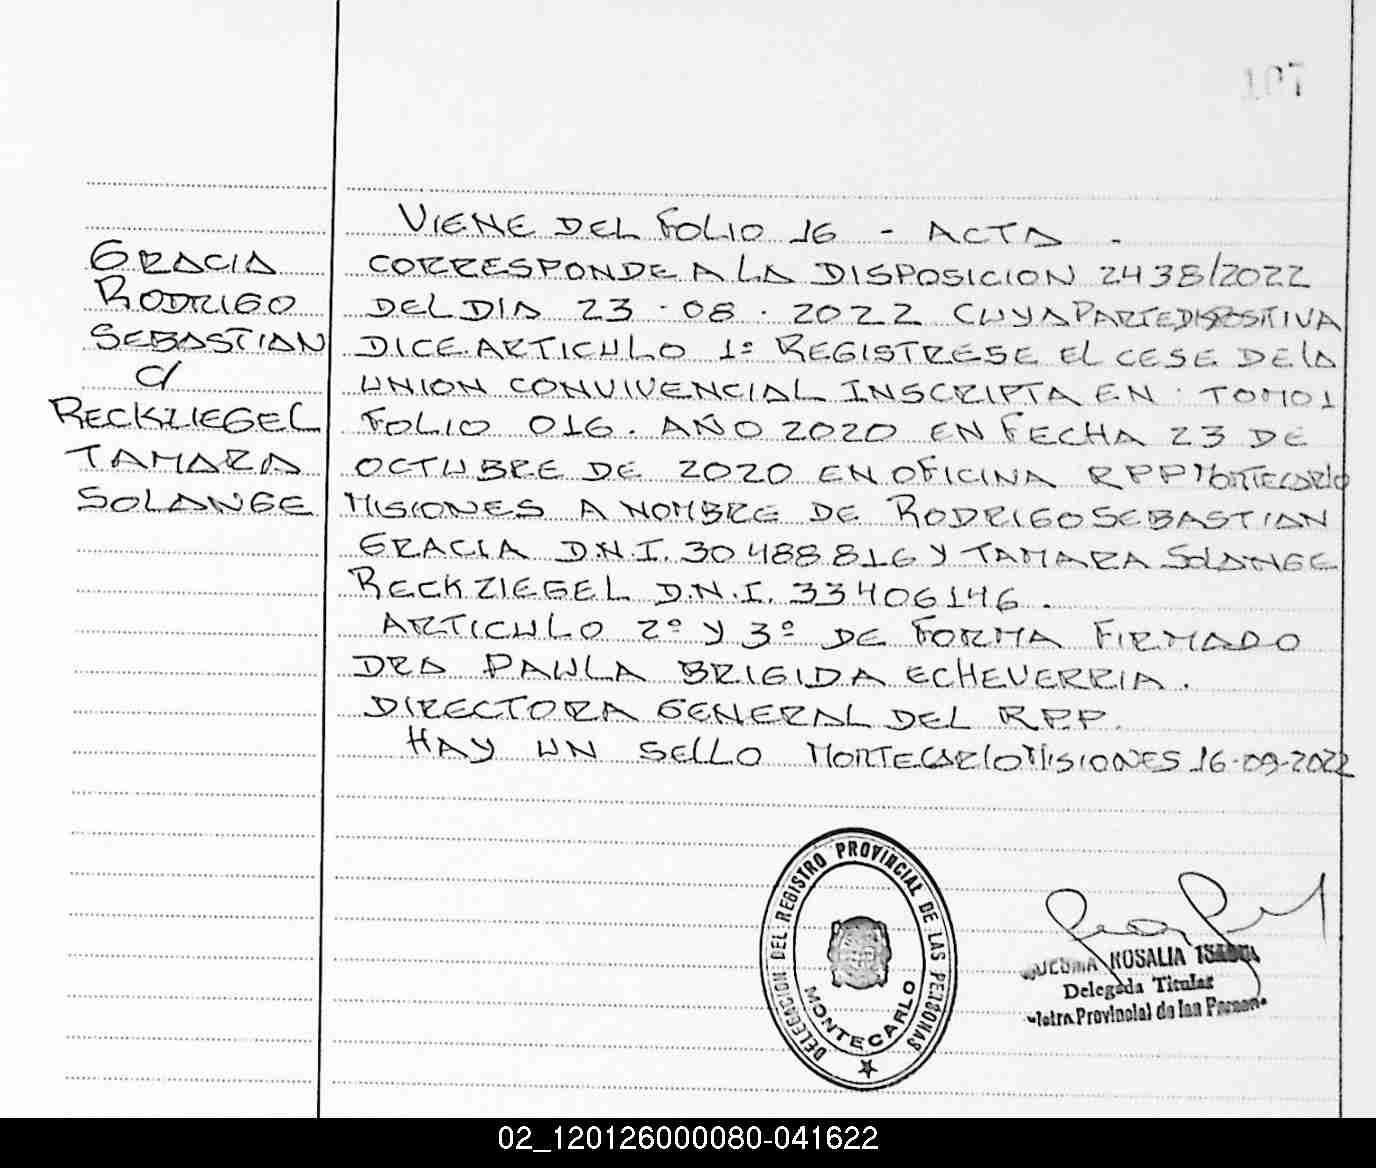 GRACIA
RODRIGO
SEBASTIAN
C/
RECKZIEGEL
TAMARA
SOLANGE
VIENE DEL FOLIO 16 - ACTA -
CORRESPONDE A LA DISPOSICION 2438/2022
DEL DIA 23.08.2022 CUYA PARTE DISPOSITIVA
DICE. ARTICULO 1º REGISTRESE EL CESE DE LA
UNION CONVIVENCIAL INSCRIPTA EN: TOMO 1
FOLIO 016. AÑO 2020 EN FECHA 23 DE
OCTUBRE DE 2020 EN OFICINA RPP MONTECARLO
MISIONES A NOMBRE DE RODRIGO SEBASTIAN
GRACIA D.N.I. 30488816 Y TAMARA SOLANGE
RECKZIEGEL D.N.I. 33406146.
ARTICULO 2º Y 3º DE FORMA FIRMADO
DRA PAULA BRIGIDA ECHEVERRIA.
DIRECTORA GENERAL DEL RPP.
HAY UN SELLO MONTECARLO MISIONES 16-09-2022
DELEGACION DEL REGISTRO PROVINCIAL DE LAS PERSONAS
MONTECARLO
ROSALIA
Delegada Titular
Provincial de las
02_120126000080-041622